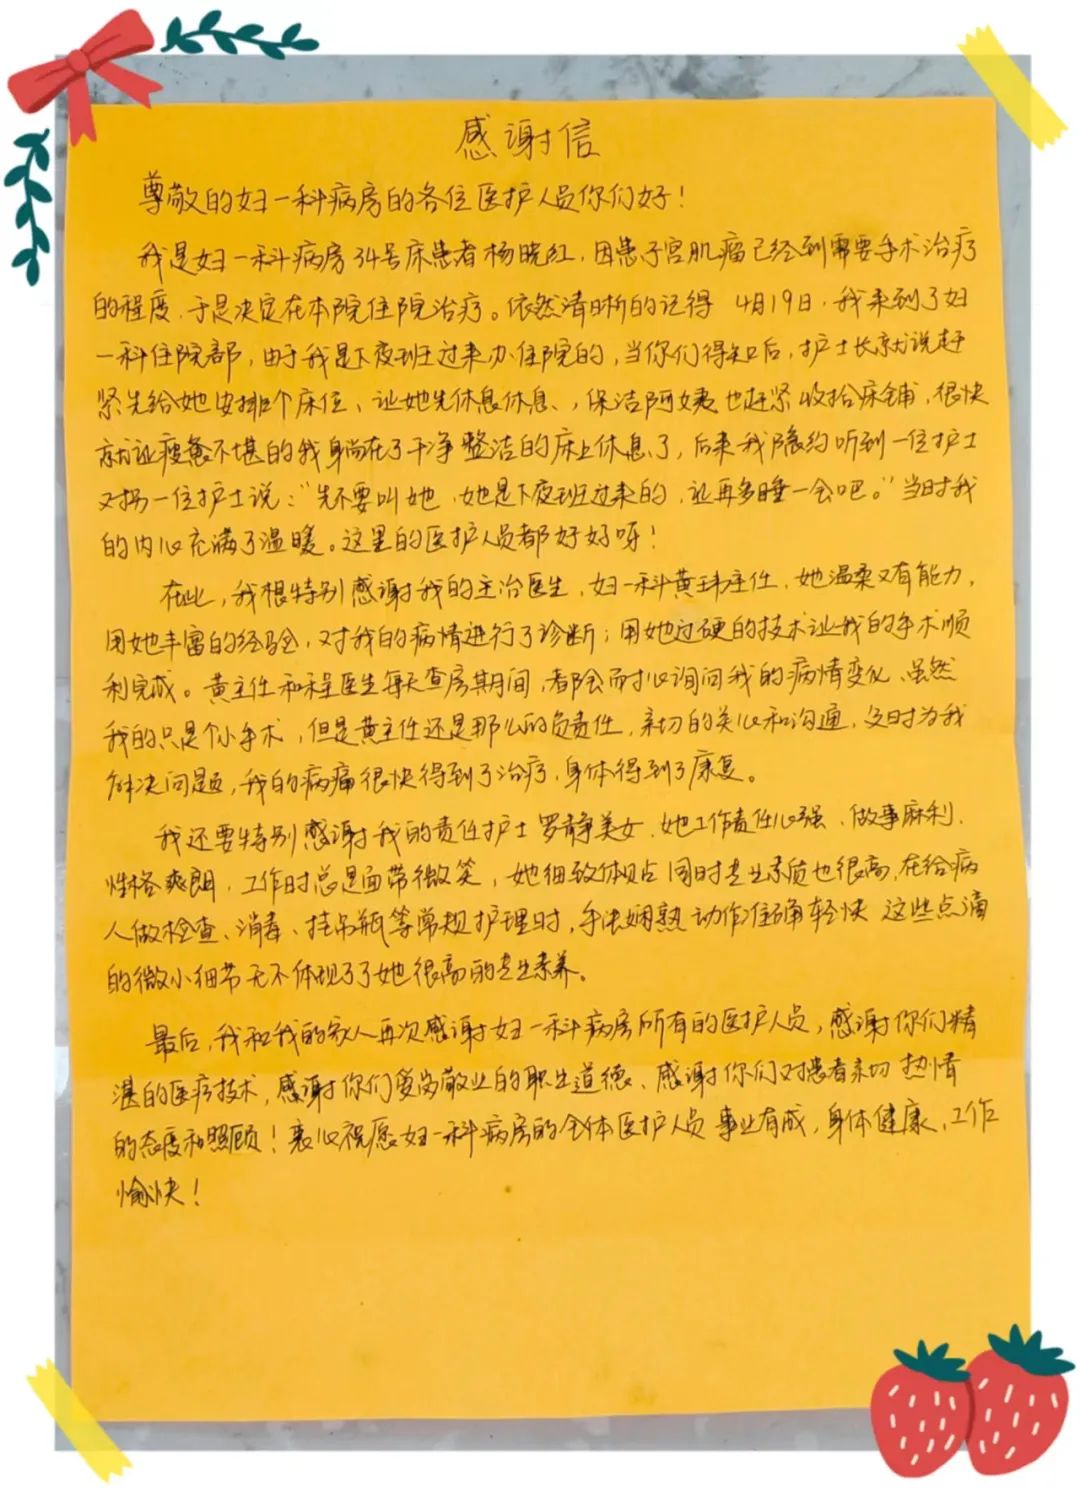 感谢信
尊敬的妇一科病房的各位医护人员你们好！
我是妇一科病房34号床患者杨晓红，因患子宫肌瘤已经到需要手术治疗
的程度，于是决定在本院住院治疗。依然清晰的记得 4月19日，我来到了妇
一科住院部，由于我是下夜班过来办住院的，当你们得知后，护士长就说赶
紧先给她安排个床位、让她先休息休息、，保洁阿姨也赶紧收拾床铺，很快
就让疲惫不堪的我躺在了干净整洁的床上休息了，后来我隐约听到一位护士
又挡一位护士说：“先不要叫她，她是下夜班过来的，让再多睡一会吧。”当时我
的内心充满了温暖。这里的医护人员都好好呀！
在此，我很特别感谢我的主治医生，妇一科黄玮主任，她温柔又有能力，
用她丰富的经验，对我的病情进行了诊断；用她过硬的技术让我的手术顺
利完成。黄主任和程医生每天查房期间，都会耐心询问我的病情变化、虽然
我的只是个小手术，但是黄主任还是那么的负责任，亲切的关心和沟通，及时为我
解决问题，我的病痛很快得到了治疗，身体得到了康复。
我还要特别感谢我的责任护士罗静美女，她工作责任心强、做事麻利、
性格爽朗，工作时总是面带微笑，她细致体贴 同时专业素质也很高，在给病
人做检查、消毒、挂吊瓶等常规护理时，手法娴熟 动作准确轻快 这些点滴
的微小细节无不体现了了她很高的专业素养。
最后，我和我的家人再次感谢妇一科病房所有的医护人员，感谢你们精
湛的医疗技术，感谢你们爱岗敬业的职业道德、感谢你们对患者亲切 热情
的态度和照顾！衷心祝愿妇一科病房的全体医护人员 事业有成，身体健康、工作
愉快！